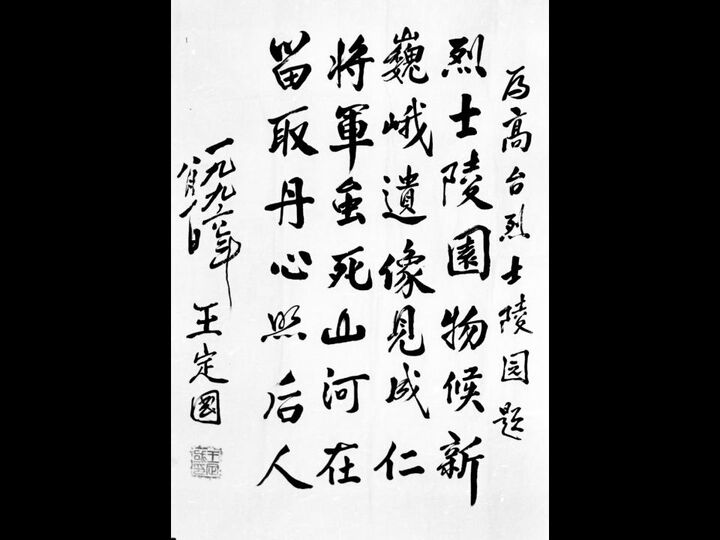 为高台烈士陵园题
烈士陵園物候新
巍峨遺像見成仁
将軍虽死山河在
留取丹心照后人
一九九六年
八月
王定國